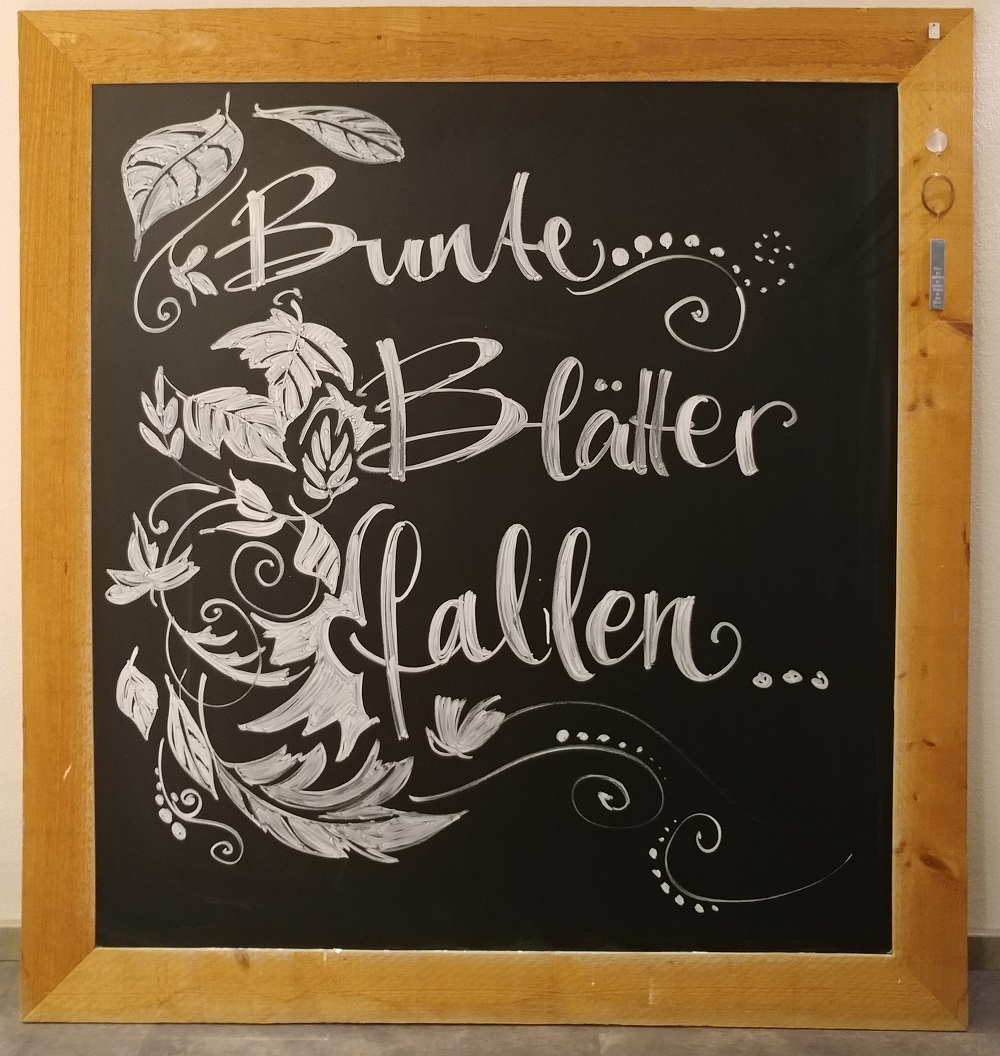 Bunte
Blätter
fallen...